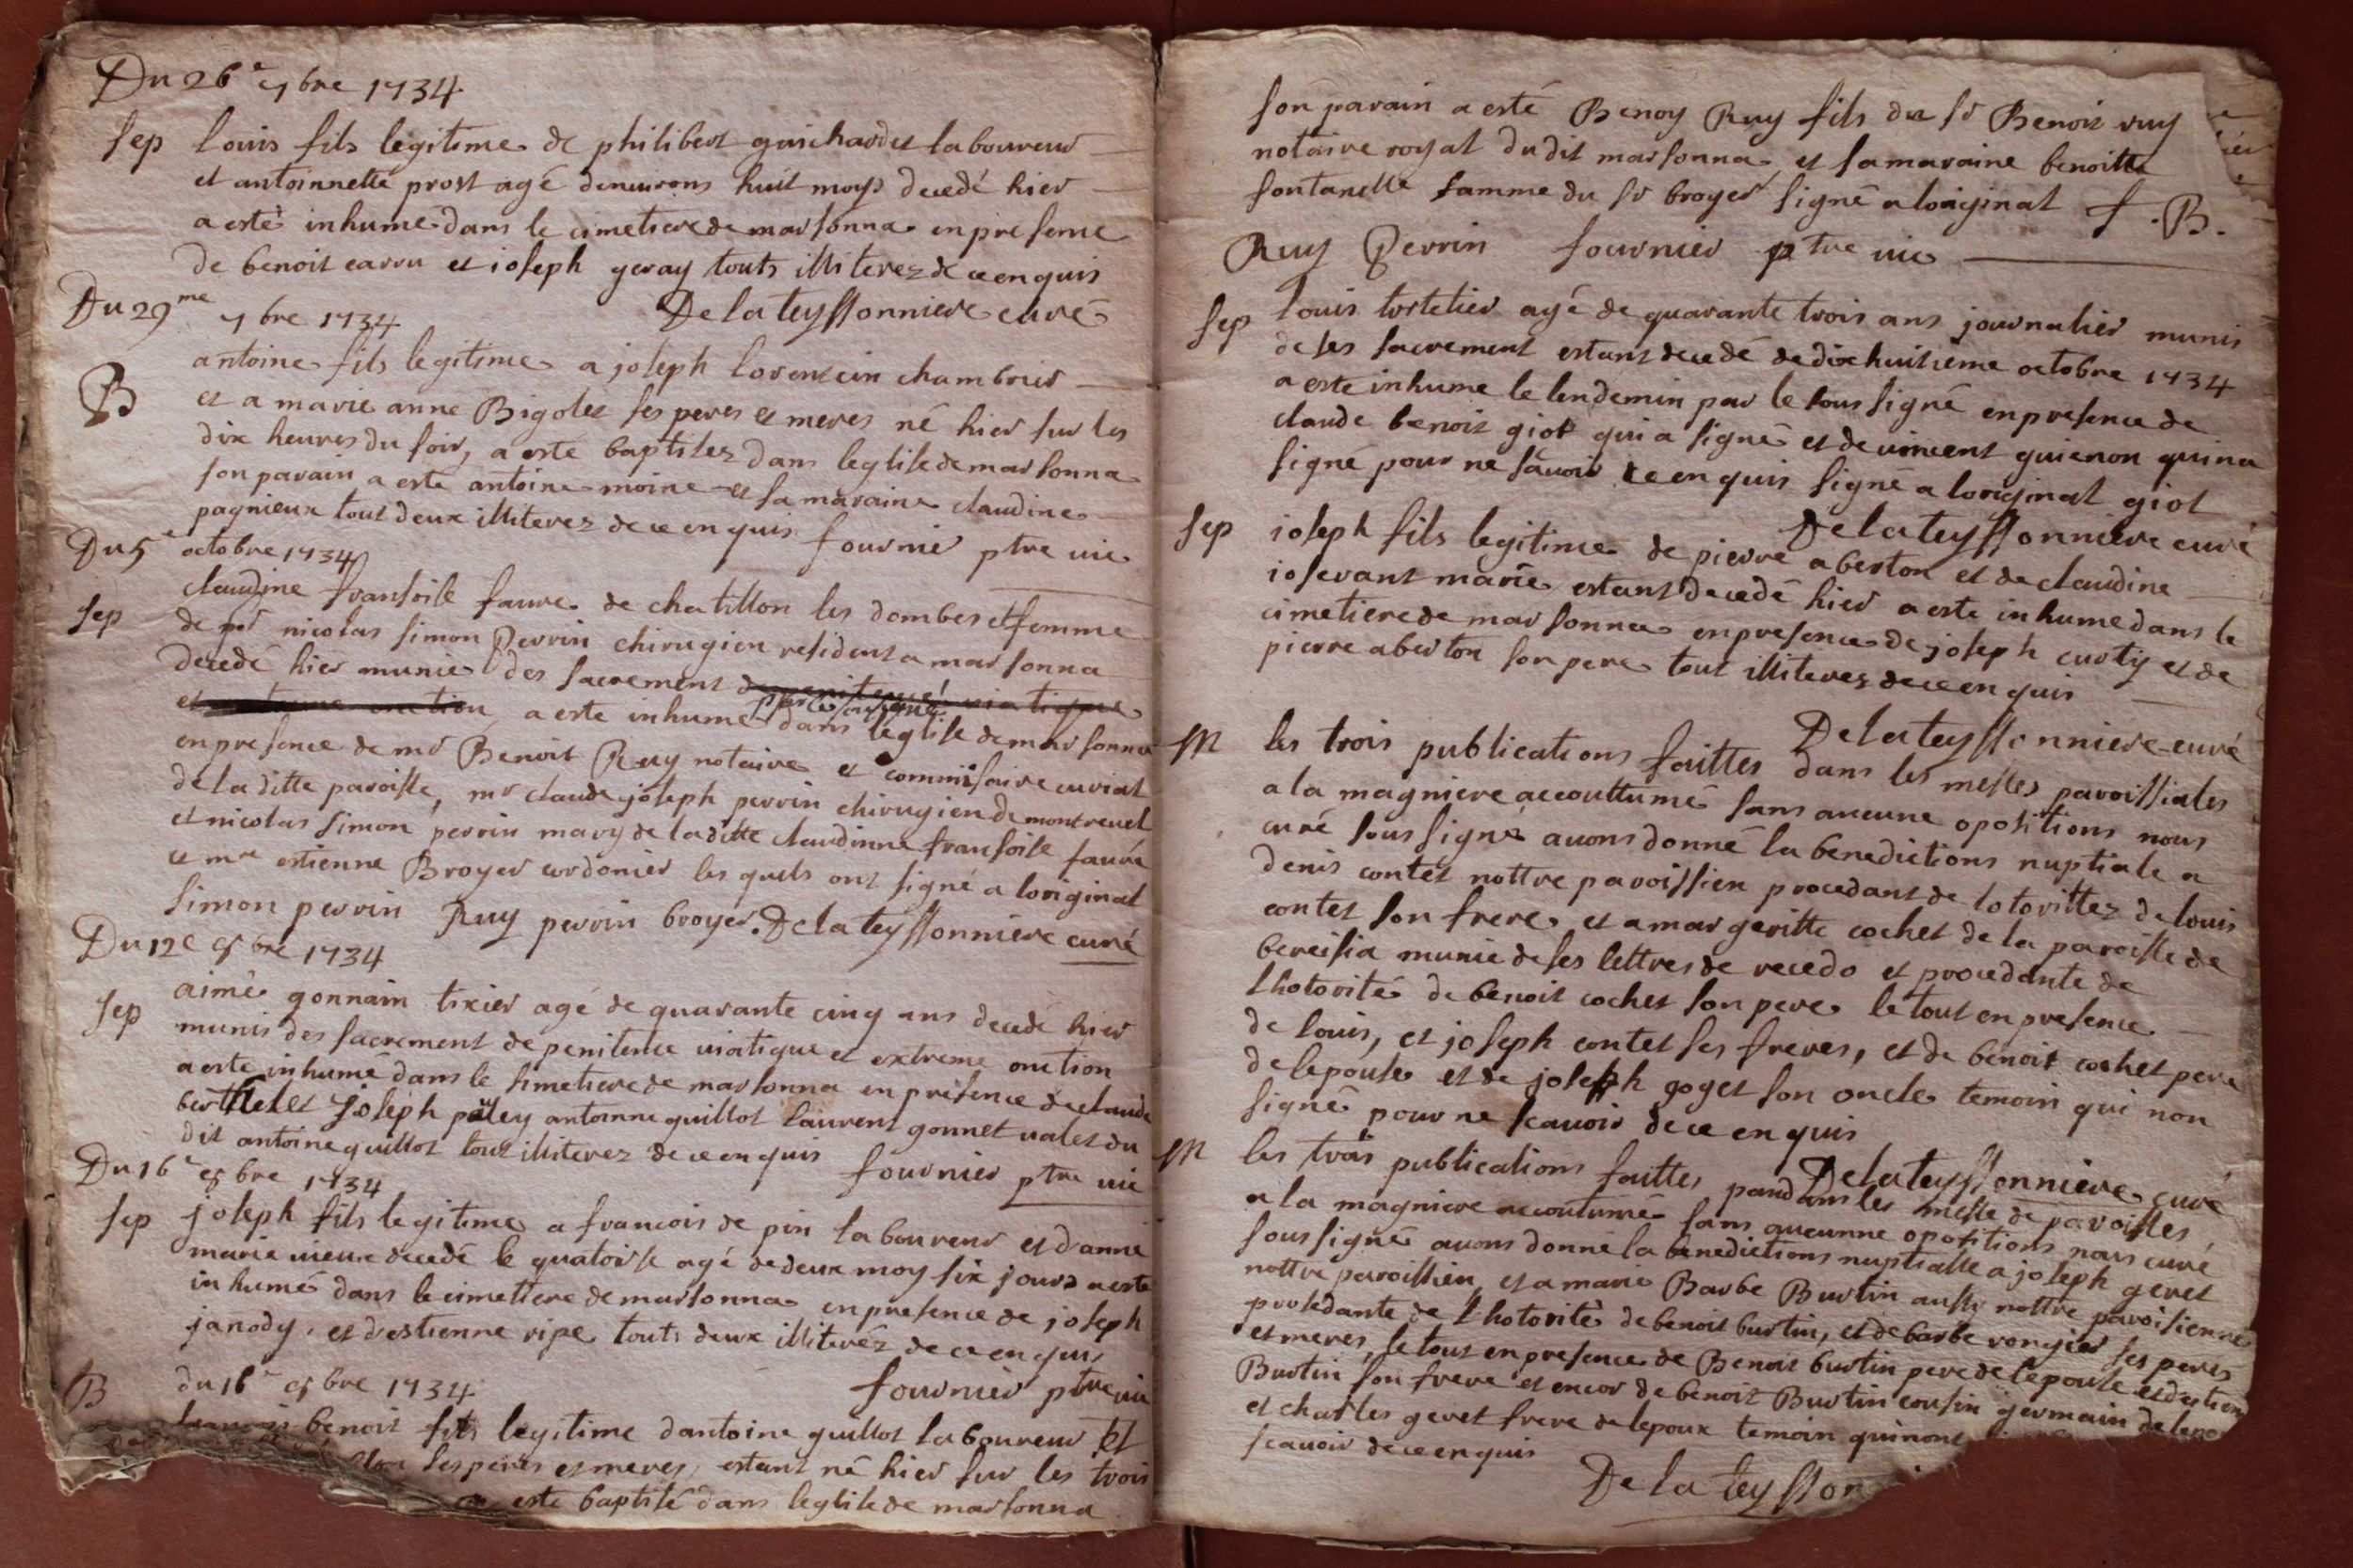 Du 26e 7bre 1734
sep louis fils legitime de philibert guichardet laboureur
et antoinnette prost agé denvirons huit moys decedé hier
a esté inhume dans le cimetiere de marsonna en presence
de benoit carru et joseph geray touts illiterez de ce enquis
Delateyssonniere curé
Du 29me 7bre 1734
B antoine fils legitime a joseph lorensin chambrier
et a marie anne Bigolet ses peres et meres né hier sur les
dix heures du soir, a esté baptisez dans leglise de marsonna
son parain a esté antoine moine et sa maraine claudine
pagnieux tout deux illiterez de ce enquis fournier ptre vic
Du 5e octobre 1734
sep claudine fransoise faure de chatillon les dombes et femme
de mr nicolas simon Perrin chirugien resident a marsonna
decedé hier munie des sacrement de penitence viatique
et extreme onction, a esté inhumé par le soussigné dans leglise de marsonna
en presence de mr Benoit Ruy notaire et commissaire curial
de la ditte paroisse, mr claude joseph perrin chirugien de montrevel
et nicolas simon perrin mary de laditte claudinne fransoise faure
e mre estienne Broyer cordonier les quels ont signé a loriginal
simon perrin Ruy perrin broyer. Delateyssonniere curé
Du 12e 8bre 1734
sep aimé gonnain tixier agé de quarante cinq ans decedé hier
munis des sacrement de penitence viatique et extreme onction
a esté inhumé dans le simetiere de marsonna en presence de claude
berthelet joseph putey antoinne guillot laurent gonnet valet du
dit antoine guillot tout illiterez de ce enquis fournier ptre vic
Du 16e 8bre 1734
sep joseph fils legitime a francois de pin laboureur et danne
marie vieux decedé le quatorse agé de deux moy six jours a esté
inhumé dans le cimetiere de marsonna en presence de joseph
janody, et destienne ripe touts deux illiteréz de ce enquis
fournier ptre vic
B du 16e 8bre 1734
benoit fils legitime dantoine guillot laboureur et
ses peres et meres, estant né hier sur les trois
esté baptisé dans leglise de marsonna
son parain a esté Benoy Ruy fils du sr Benoit ruy
notaire royal dudit marsonna et sa maraine benoitte
fontanelle famme du sr broyer signé a loriginal f. B.
Ruy Perrin fournier ptre vic
sep louis tortelier agé de quarante trois ans journalier munis
de ses sacrement estant decedé de dixhuitieme octobre 1734
a esté inhume le lendemin par le soussigné en presence de
claude benoit giot qui a signé et de vincent guienon qui na
signé pour ne sávoir ce enquis signé a loriginal giot
Delateyssonniere curé
sep joseph fils legitime de pierre aberton et de claudine
joserant marie estant decedé hier a esté inhume dans le
cimetiere de marsonna en presence de joseph curtij et de
pierre aberton son pere tout illiterez de ce enquis
Delateyssonniere curé
M les trois publications faittes dans les messes paroissiales
a la magniere accouttumé sans aucune opositions nous
curé soussigné avons donné la benedictions nuptiale a
denis contet nottre paroissien procedant de lotorittez de louis
contet son frere et a margeritte cochet de la paroisse de
bereisia munie de ses lettres de recedo et procedante de
lhotorité de benoit cochet son pere le tout en presence
de louis, et joseph contet ses freres, et de benoit cochet pere
de lepouse et de joseph goget son oncle temoin qui non
signé pour ne scavoir de ce enquis
Delateyssonniere curé
M les trois publications faittes pandans les messe de paroisses
a la magniere accoutumé sans aucunne opositions nous curé
soussigné avons donné la benedictions nuptialle a joseph geret
nottre paroissien, et a marie Barbe Burtin aussy nottre paroisienne
prosedante de lhotorité de benoit burtin, et de barbe rongier ses peres
et meres, le tout en presence de Benoit burtin pere de lepouse et destien
Burtin son frere et encor de benoit Burtin cousin germain de lepo
et charles geret frere de lepoux temoin quinont
scavoir de ce enquis
Delateysson